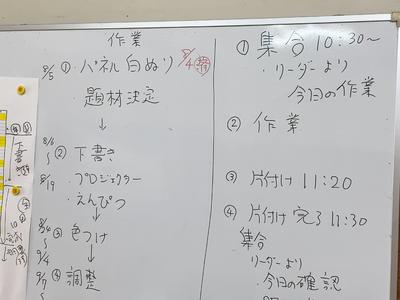 作業
8/5 ① ・パネル白ぬり 8/4
・題材決定
↓
8/6 〜 8/19 ② 下書き
・プロジェクター
・えんぴつ
↓
8/24 〜 9/4 ③ 色つけ
↓
9/7 ④ 調整
① 集合 10:30〜
・リーダーより
今日の作業
② 作業
③ 片付け 11:20
④ 片付け完了 11:30
集合
リーダーより
・今日の確認
下書き